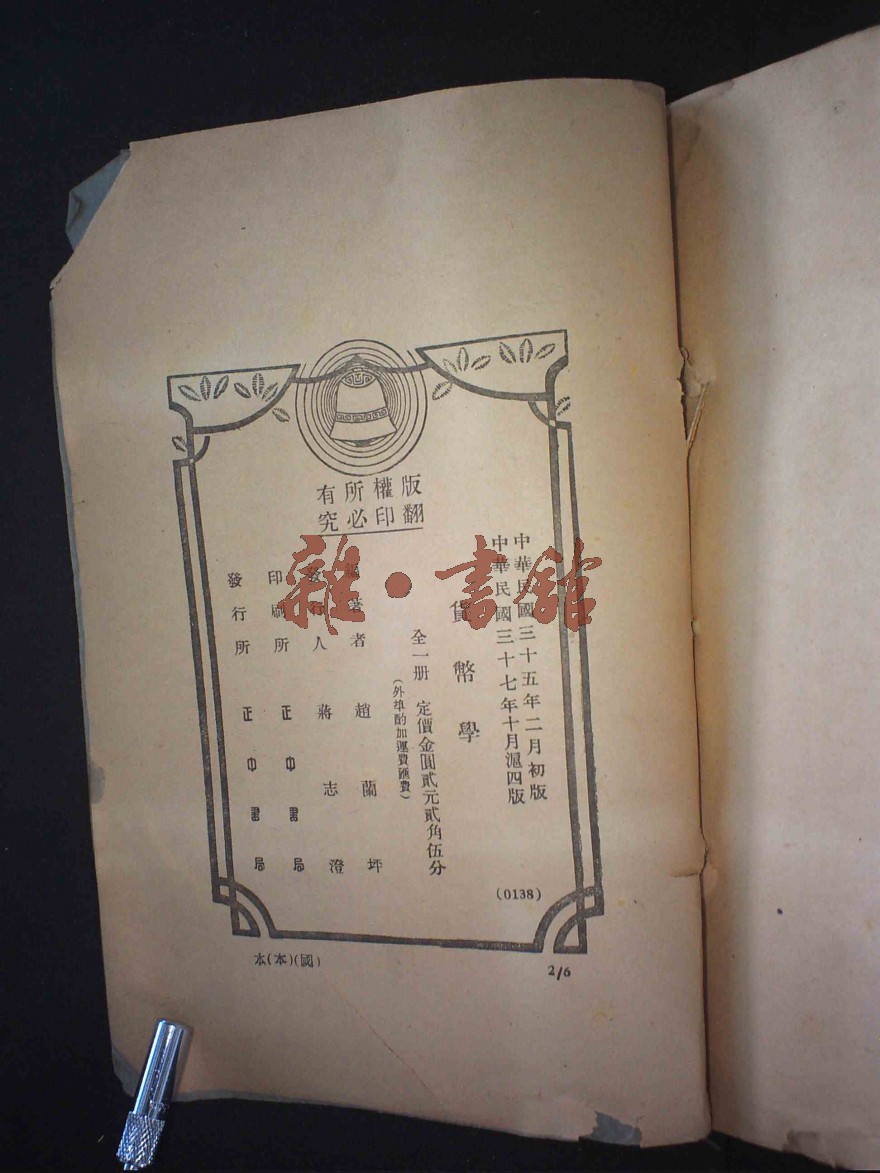 版權所有
翻印必究
中華民國三十五年二月初版
中華民國三十七年十月滬四版
貨幣學
全一册 定價金圓貳元貳角伍分
(外埠酌加運費匯費)
編著者 趙蘭坪
發行人 蔣志澄
印刷所 正中書局
發行所 正中書局
(0138)
本(本)(國)
2/6
雜·書館